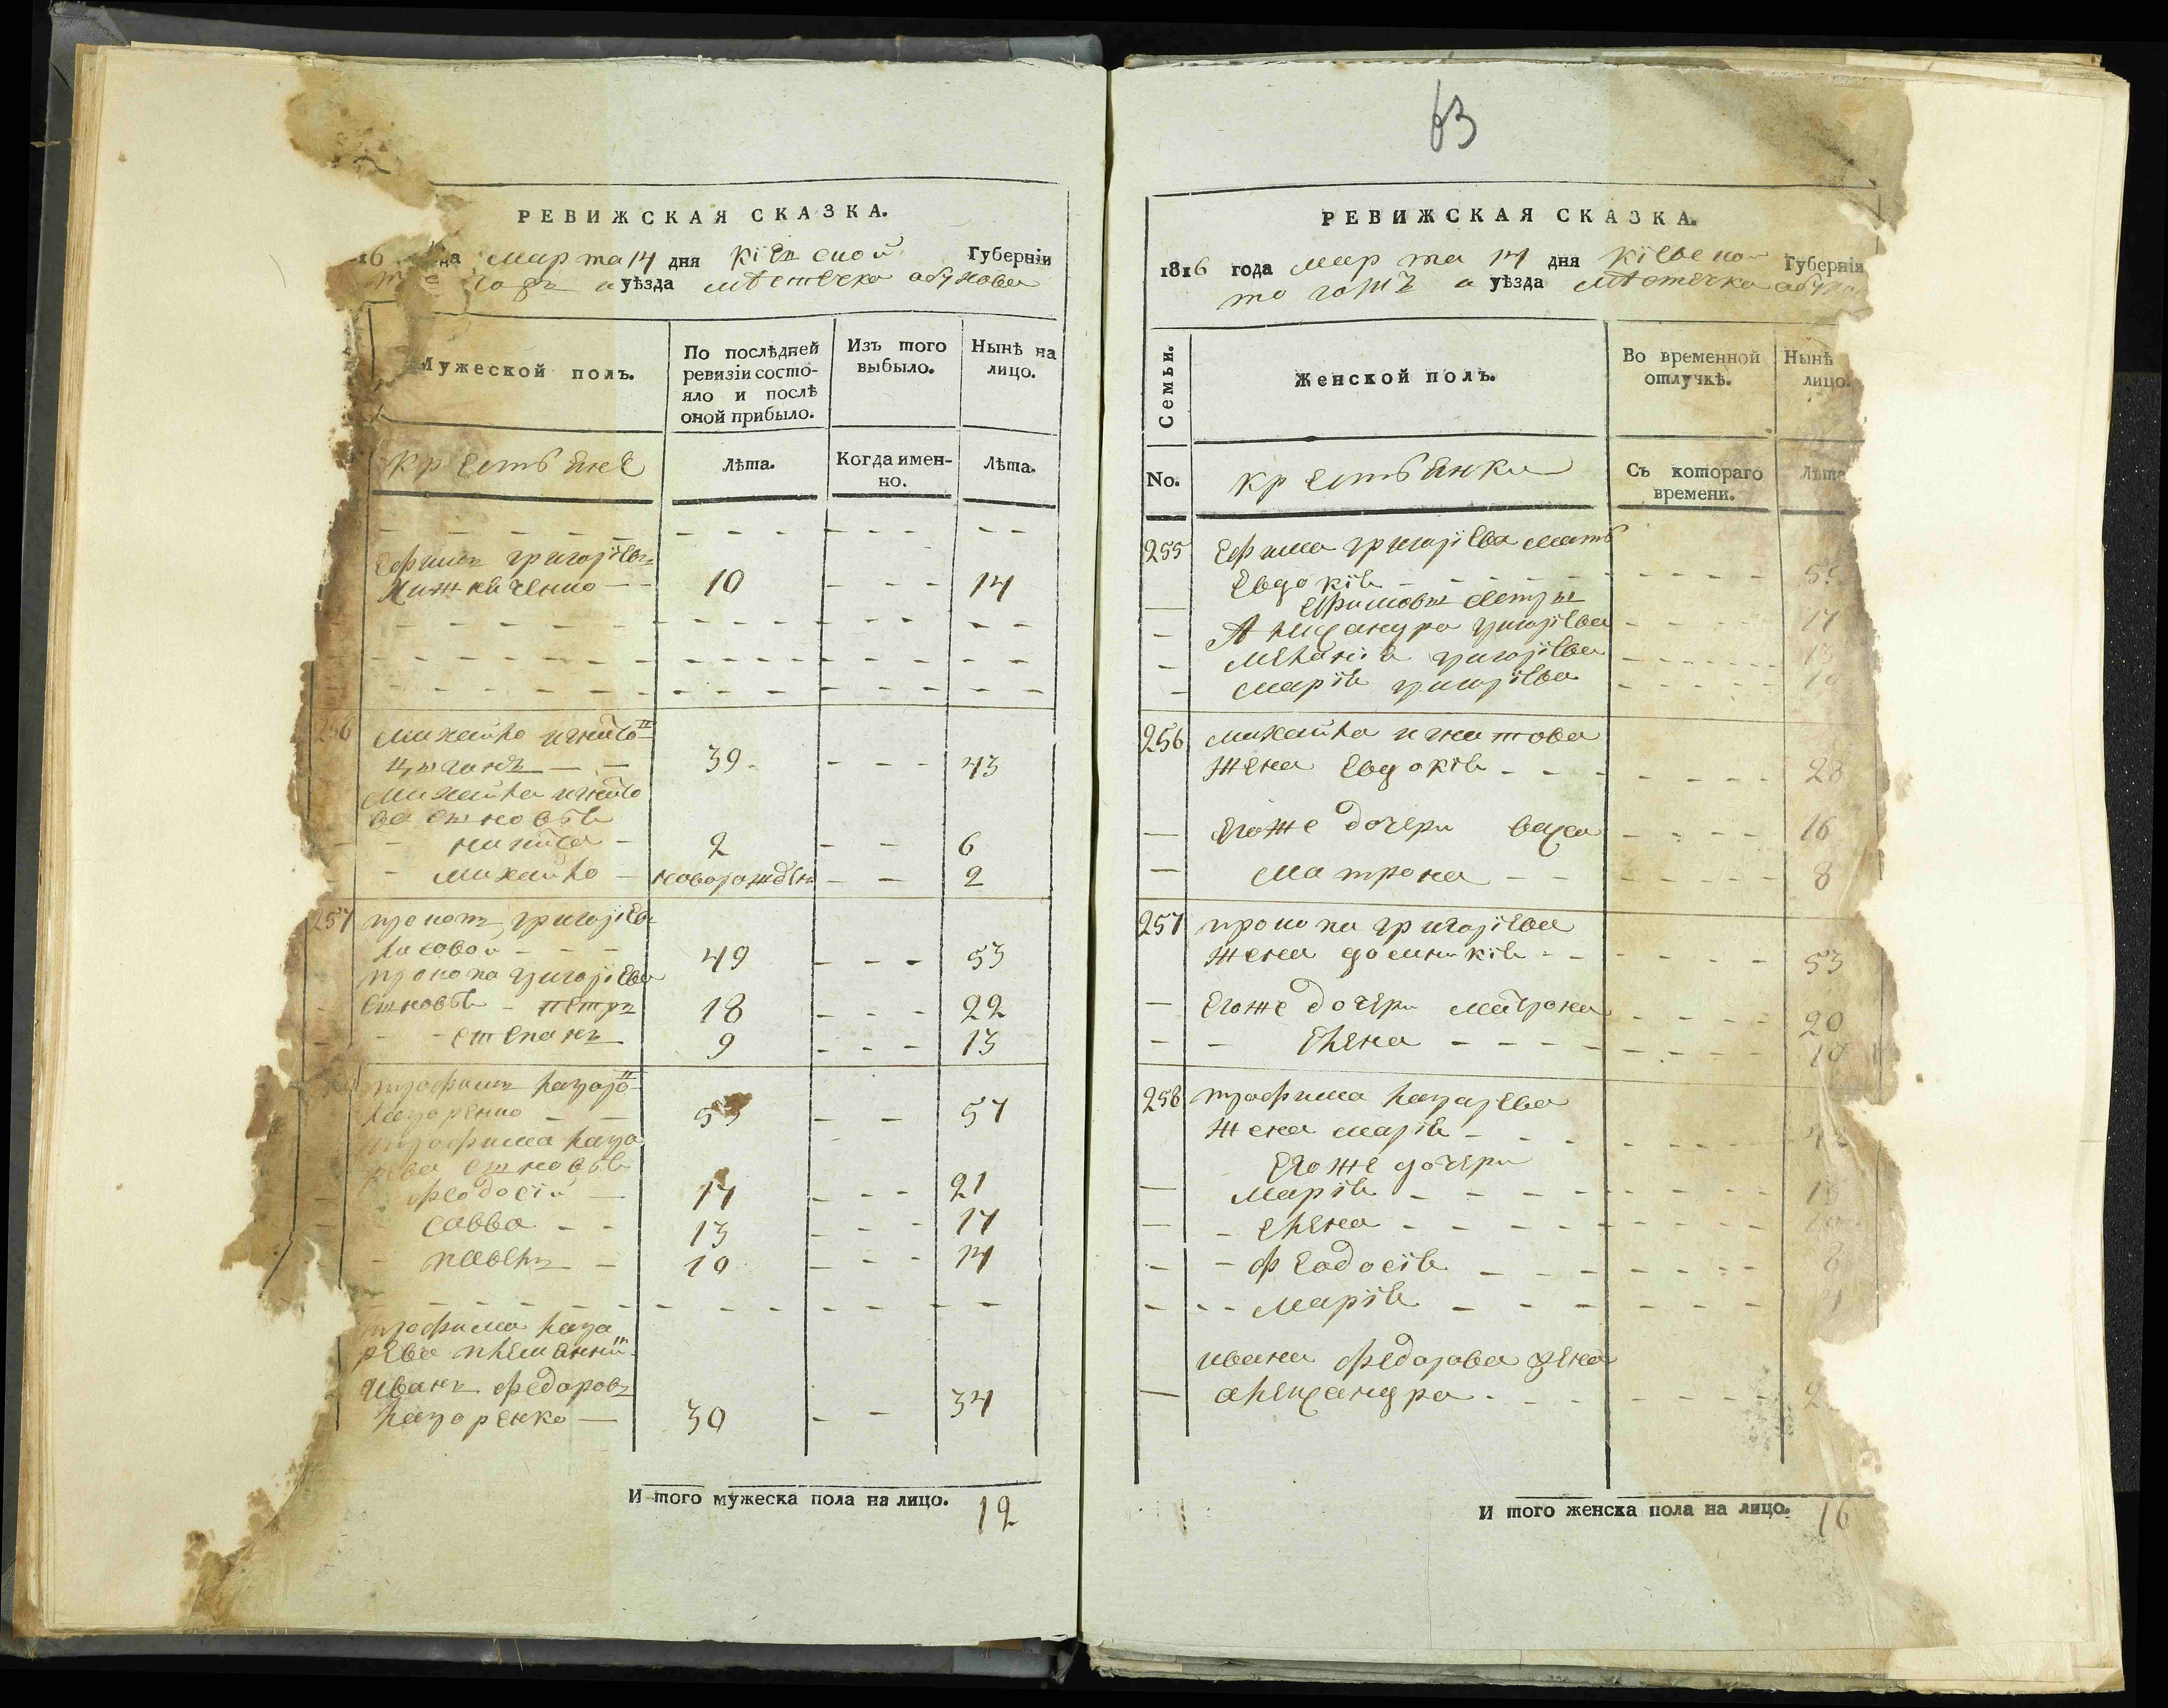 РЕВИЖСКАЯ СКАЗКА.
марта 14 дня Кіевской Губерніи
уѣзда мѣстечка обухова
Мужеской полъ.
По послѣдней
ревизіи состо-
яло и послѣ
оной прибыло.
Изъ того
выбыло.
Нынѣ на
лицо.
крестьяне
Лѣта.
Когда имен-
но.
Лѣта.
Ефимъ григорьевъ
10 14
256 михайло игнатов
цыганъ 39 43
михайла игнато
ва сыновья
никита 2 6
михайло новорожден 2
257 прокопъ григорьев
лисовой 49 53
прокопа григорьева
сыновья петръ 18 22
степанъ 9 13
трофимъ лазаро
лазоренко 53 57
трофима лаза
рева сыновья
феодосій 17 21
савва 13 17
павелъ 10 14
трофима лаза
рева племянни
иванъ федоровъ
лазоренко 30 34
И того мужеска пола на лицо. 12
63
РЕВИЖСКАЯ СКАЗКА.
1816 года марта 14 дня Кіевской Губернія
уѣзда мѣстечка
Семьи.
Женской полъ.
Во временной
отлучкѣ.
Нынѣ
лицо.
No.
крестьянки
Съ котораго
времени.
Лѣта
255 Ефима григорьева мать
Евдокія
Ефимовы сестры
григорьева 17
меланія григорьева 13
марія григорьева 10
256 михайла игнатова
жена Евдокія 28
Егоже дочери васса 16
матрона 8
257 прокопа григорьева
жена домникія 53
Егоже дочери матрона 20
Елена
258 трофима лазарева
жена марія
Егоже дочери
марія
Елена
феодосія 8
марія 1
ивана федорова жена
александра
И того женска пола на лицо. 16